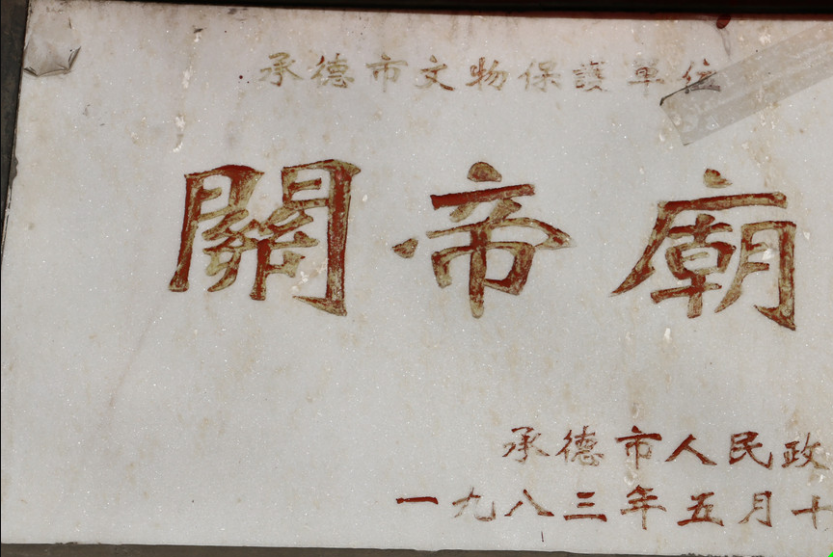 承德市文物保護單位
關帝廟
承德市人民政
一九八三年五月十